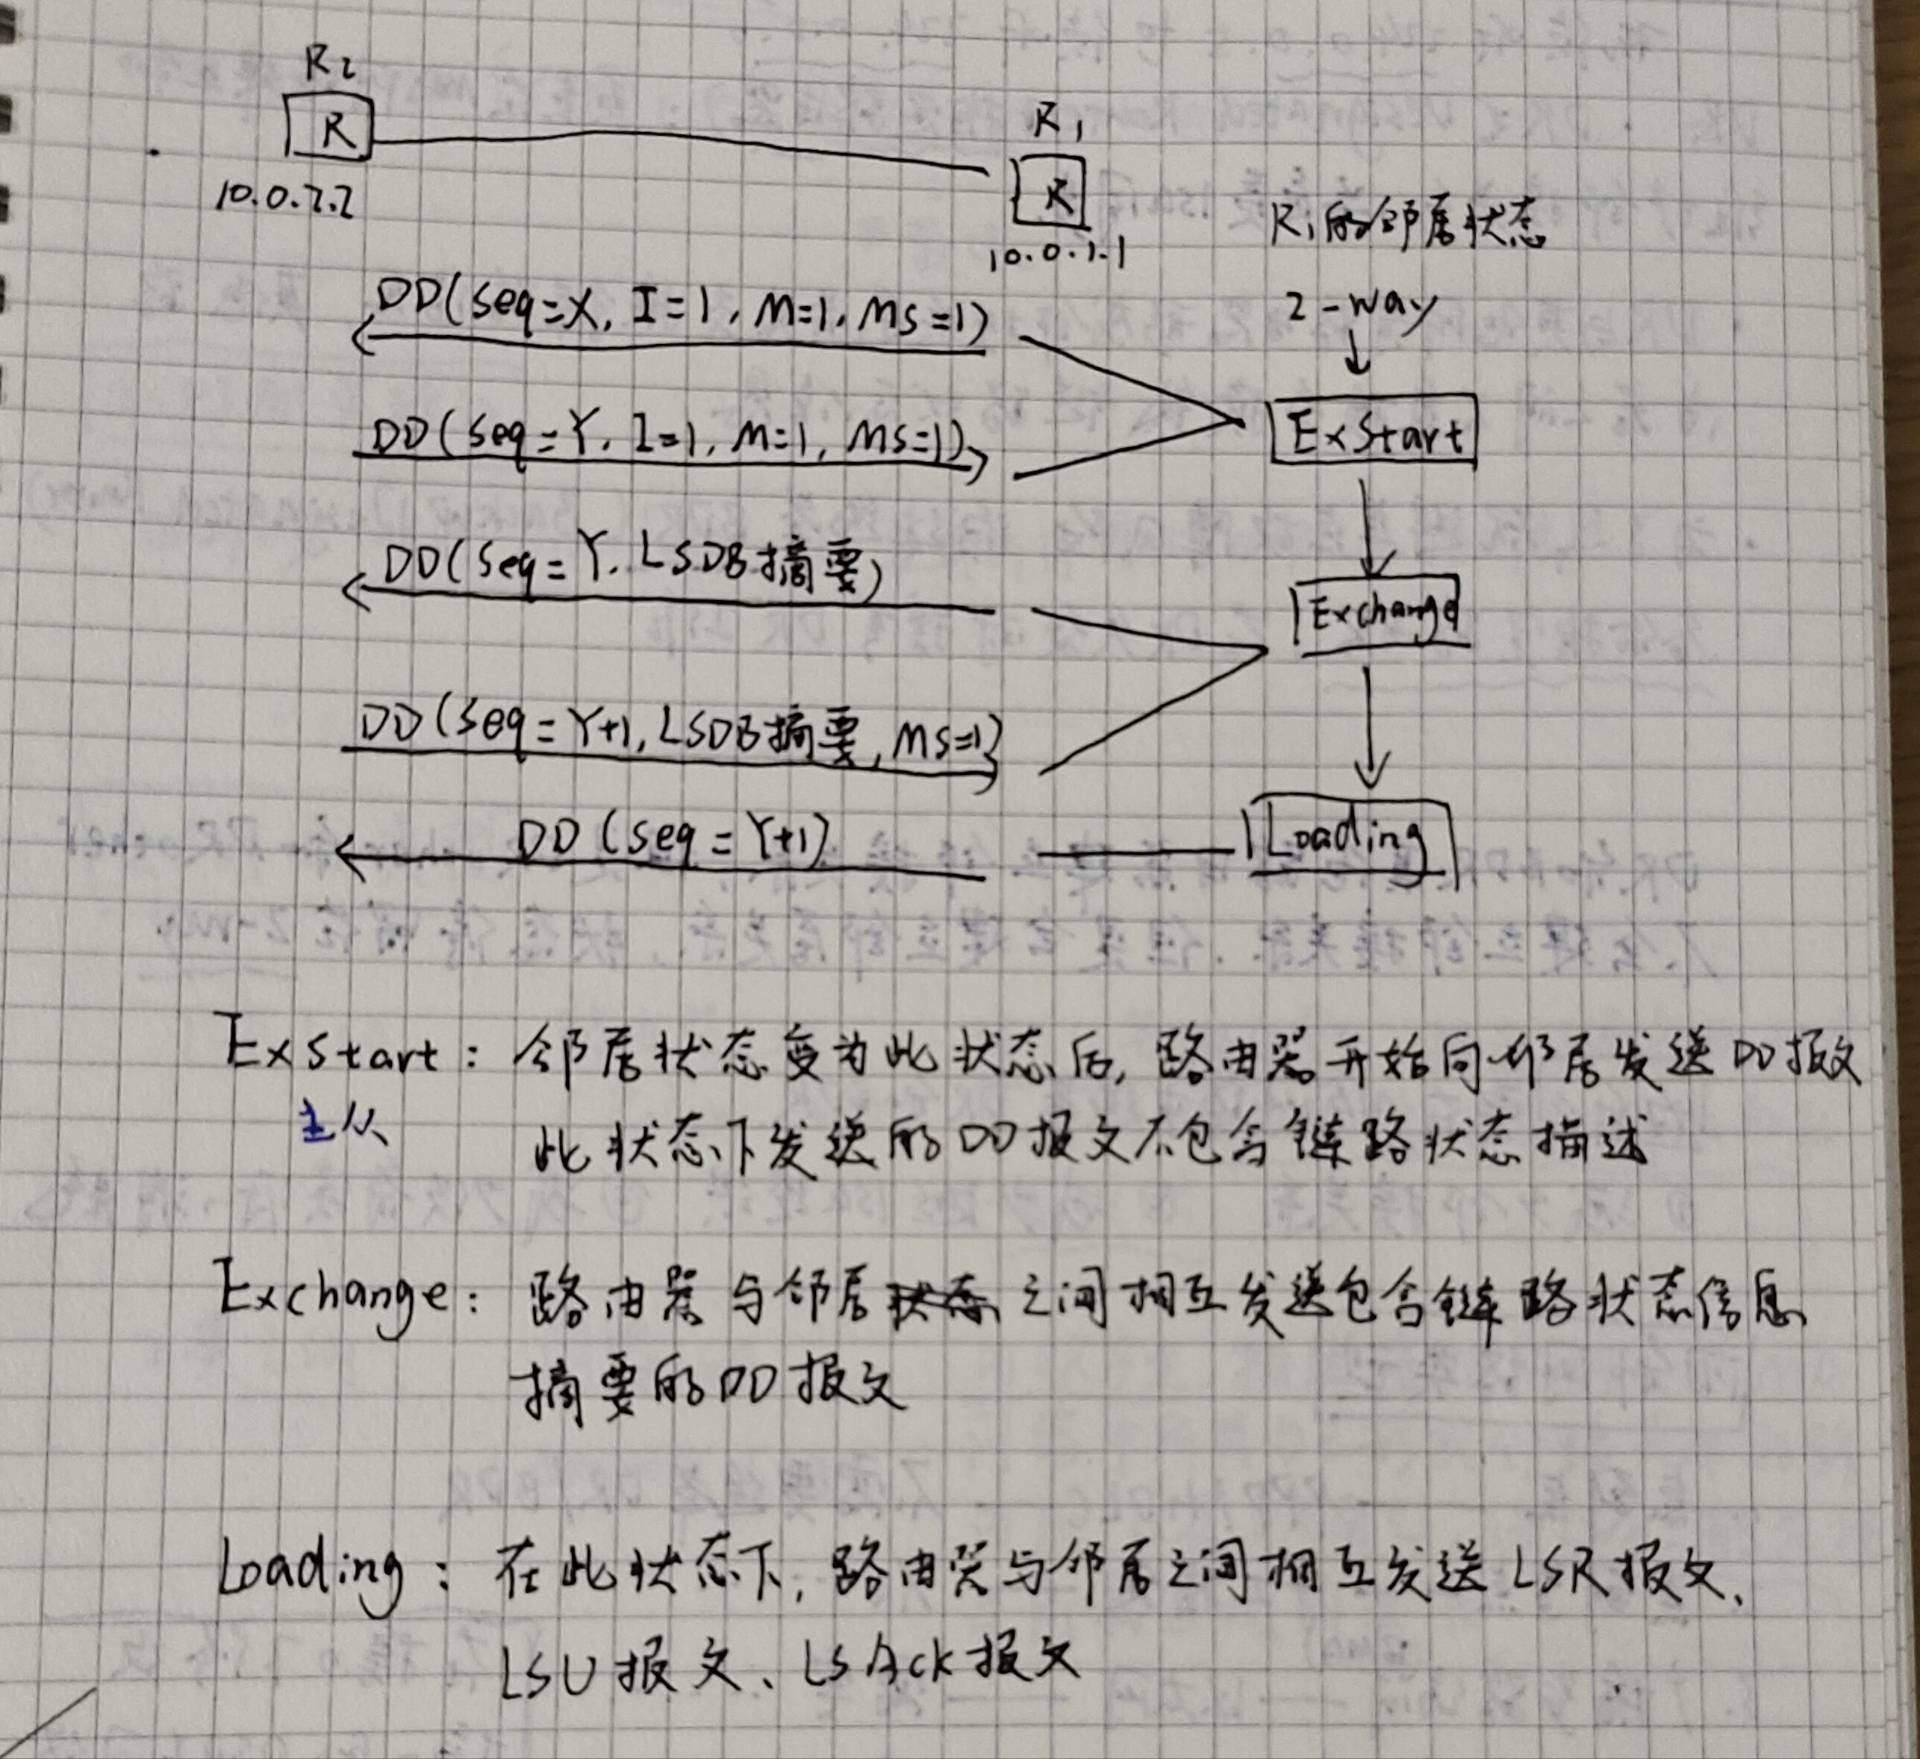 R2
R
10.0.2.2
R1
R
10.0.1.1
R1的邻居状态
2-way
DD(seq=X, I=1, M=1, MS=1)
DD(seq=Y, I=1, M=1, MS=1)
ExStart
DD(seq=Y, LSDB摘要)
Exchange
DD(seq=Y+1, LSDB摘要, MS=1)
DD(seq=Y+1)
Loading
ExStart: 邻居状态变为此状态后, 路由器开始向邻居发送DD报文
主从 此状态下发送的DD报文不包含链路状态描述
Exchange: 路由器与邻居之间相互发送包含链路状态信息
摘要的DD报文
Loading: 在此状态下, 路由器与邻居之间相互发送LSR报文、
LSU报文、LSAck报文